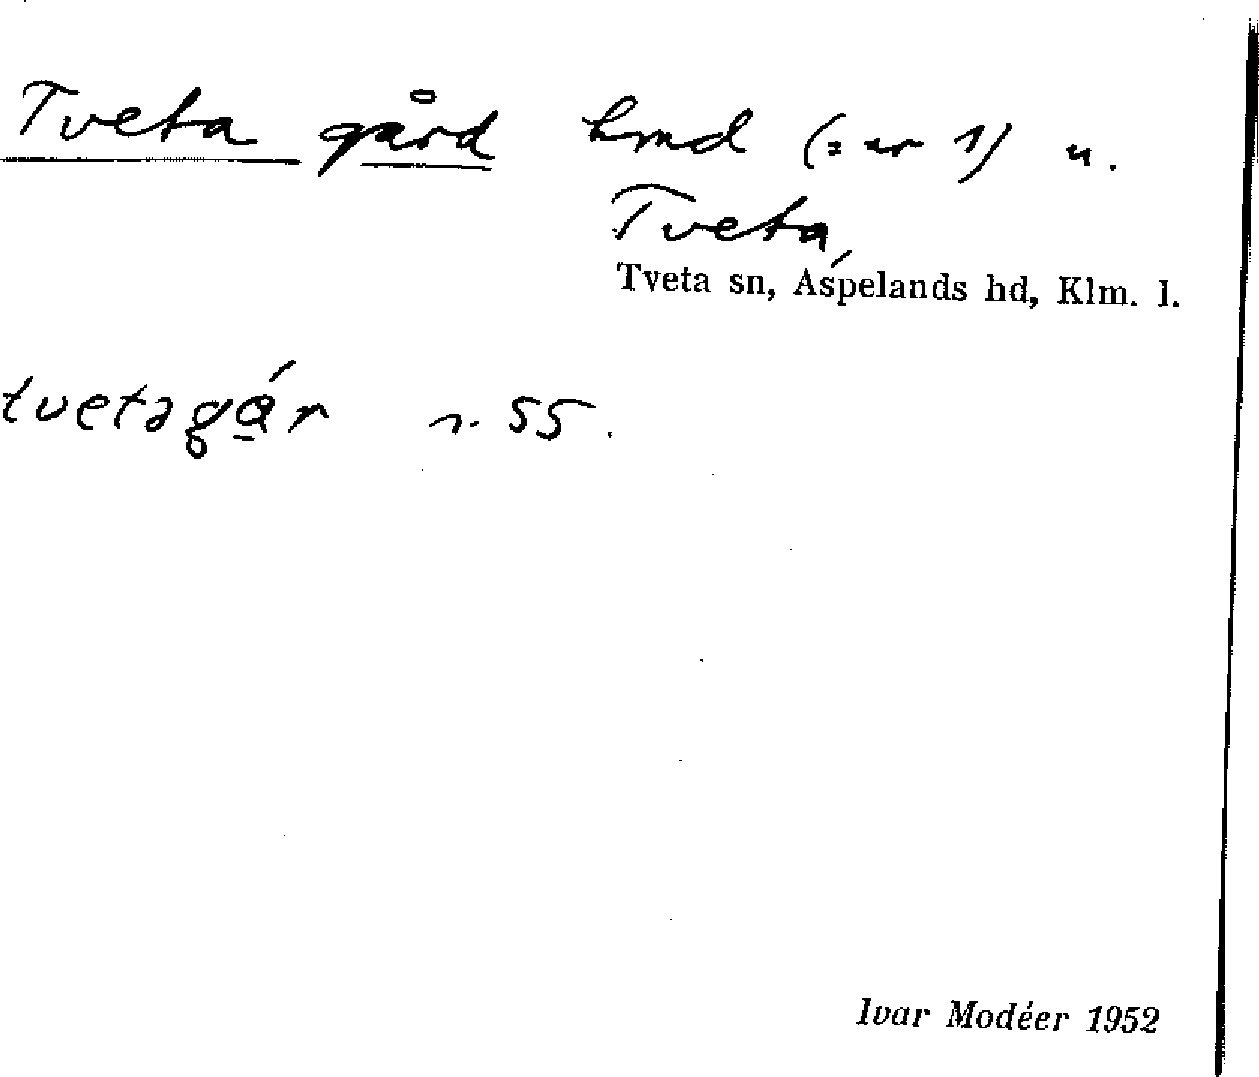 Tveta gård hmd (= nr 1) u.
Tveta,
Tveta sn, Aspelands hd, Klm. l.
tvetagár r. 55.
Ivar Modéer 1952